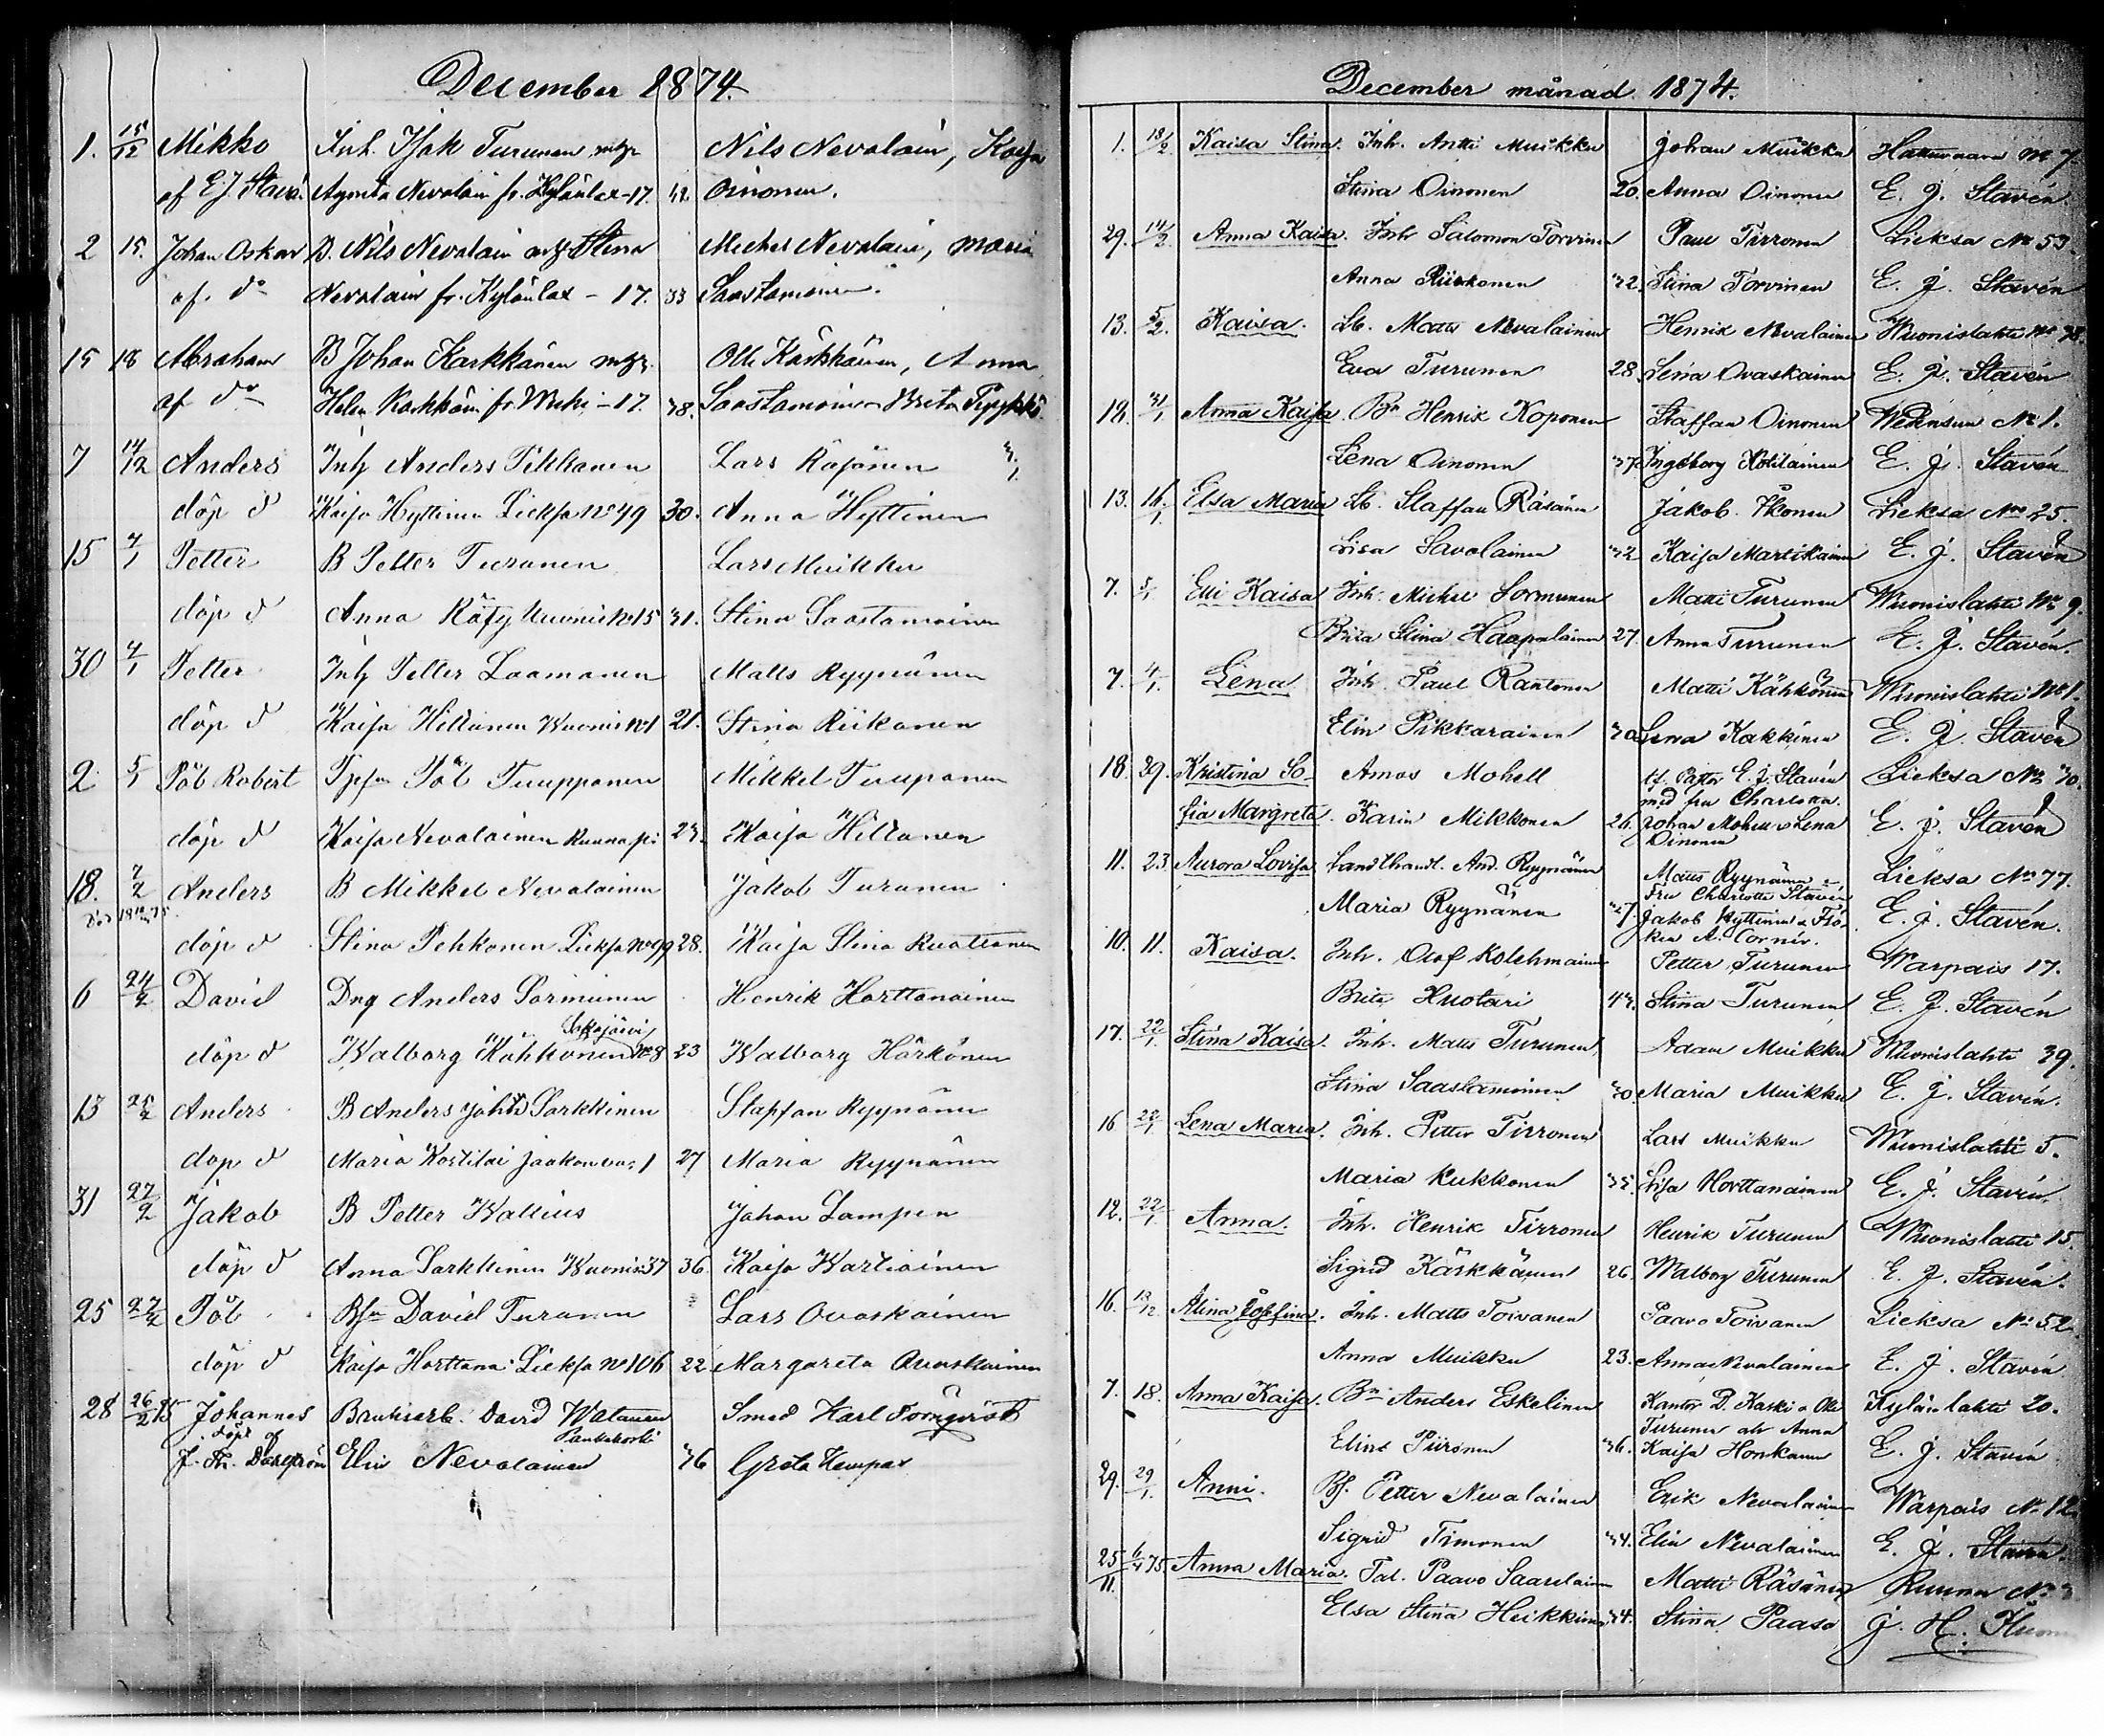 December 1874.
1. 15/12 Mikko Inh. Isak Turunen m. h. Nils Nevalain, Kaisa
af E J Stavé. Agneta Nevalain fr. Kylänlax - 17. 42 Oinonen.
2 15. Johan Oskar B. Nils Nevalain Stina Michel Nevalain, Maria
af do Nevalain fr. Kylänlax - 17. 33 Saastamoinen.
15 18 Abraham B Johan Karkkänen Olli Kärkkäinen, Anna
af do Helen Karkkäin fr. - 17. 38. Saastamoinen Brita
7 14/12 Anders Inh Anders Pikkanen Lars Räsänen
döp d Kaisa Hyttinen Lieksa No 49 30. Anna Hyttinen
15 4/1 Petter B Petter Turunen Lars Muikku
döp d Anna Räty Wuonis No 15 31. Stina Saastamoinen
30 4/1 Petter Inh Petter Laamanen Matts Ryynänen
döp d Kaisa Hiltunen Wuonis No 1 21. Stina Riikonen
2 5/1 Påb Robert Påb Turpponen Mikkel Turponen
döp d Kaisa Nevalainen Ruunapi 23. Kaisa Hiltunen
18. 7/2 Anders B Mikkel Nevalainen Jakob Turunen
döp d Stina Pehkonen Lieksa No 99 28. Kaisa Stina
6 24/2 David Dng Anders Sormunen Henrik Harttanainen
döp d Walborg Kähkönen No 8 23 Walborg Härkönen
13 25/2 Anders B Anders Johan Sarkkinen Staffan Ryynänen
döp d Maria Jaakonvar 1 27 Maria Ryynänen
31 27/2 Jakob B Petter Wallius Johan Lampen
döp d Anna Sarkkinen Wuonis 37 36 Kaisa Wartiainen
25 27/2 Påb Bsn David Turunen Lars Ovaskainen
döp d Kaisa Horttana Lieksa No 106 22 Margareta Ovaskainen
28 26/2 75 Johannes Bruksarb. David Watanen Smed Karl Törnqvist
döpt af Pankakoski
J. Fr. Elin Nevalainen 36 Greta
December månad. 1874.
1. 18/2 Kaisa Stina. Inh. Antti Muikku Johan Muikku Hattuvaara No 7.
Stina Oinonen 20. Anna Oinonen E. J. Stavén
29. 14/2 Anna Kaisa. Inh Salomon Torvinen Paul Tirronen Lieksa No 53.
Anna Riikonen 32. Stina Torvinen E. J. Stavén
13. 5/2. Kaisa. Lb. Matts Nevalainen Henrik Nevalainen Wuonislahti No 78.
Eva Turunen 28. Lena Ovaskainen E. J. Stavén
12. 31/1 Anna Kaisa. Bn Henrik Koponen Staffan Oinonen No 1.
Lena Oinonen 37. Ingeborg Kotilainen E. J. Stavén
13. 16/1 Elsa Maria Lb. Staffan Räsänen Jakob Ikonen Lieksa No 25.
Lisa Savolainen 32 Kaisa Martikainen E. J. Stavén
7. 5/1 Elli Kaisa Inh. Michel Sormunen Matti Turunen Wuonislahti No 9.
Brita Stina Haapalainen 27. Anna Turunen E. J. Stavén.
7. 4/1. Lena Inh. Paul Rantonen Matti Kähkönen Wuonislahti No 1.
Elin Pikkarainen 30 Lena Kakkinen E. J. Stavén
18. 29. Kristina So- Amos Mohell tf. Pastor E. J. Stavén Lieksa No 30.
med fru Charlotta.
fia Margreta. Karin Mikkonen 26. Johan Mohell o Lena E. J. Stavén
Oinonen
11. 23 Aurora Lovisa Landthandl. And. Ryynänen Matts Ryynänen Lieksa No 77.
Fru Charlotte Stavén
Maria Ryynänen 27. Jakob Hyttinen o Frö- E. J. Stavén.
ken A.
10. 11. Kaisa. Inh. Olof Kolehmainen Petter Turunen Warpais 17.
Brita Huotari 43. Stina Turunen E. J. Stavén
17. 22/1. Stina Kaisa. Inh. Matts Turunen Adam Muikku Wuonislahti 39.
Stina Saastamoinen 30. Maria Muikku E. J. Stavén.
16 22/1. Lena Maria. Inh. Petter Tirronen Lars Muikku Wuonislahti 5.
Maria Kukkonen 35. Lisa Horttanainen E. J. Stavén.
12. 22/1. Anna. Inh. Henrik Tirronen Henrik Turunen Wuonislahti 15.
Sigrid Kärkkänen 26. Walborg Turunen E. J. Stavén.
16. 13/12 Alina Josefina. Inh. Matts Toivanen Paavo Toivanen Lieksa No 52.
Anna Muikku 23. Anna Nevalainen E. J. Stavén
7. 18. Anna Kaisa. Bn Anders Eskelinen Kantor D. Kaski o Olli Kylänlahti 20.
Turunen och Anna
Elina Piironen 36. Kaisa Honkanen E. J. Stavén
29. 29/1. Anni. Bs. Petter Nevalainen Erik Nevalainen Warpais No 12.
Sigrid Timonen 34. Elin Nevalainen E. J. Stavén.
25/11. 6/4 75. Anna Maria. Tal. Paavo Saarelainen Matti Räsänen Ruuna No
Elsa Stina Heikkinen 34. Stina Paaso J. H.